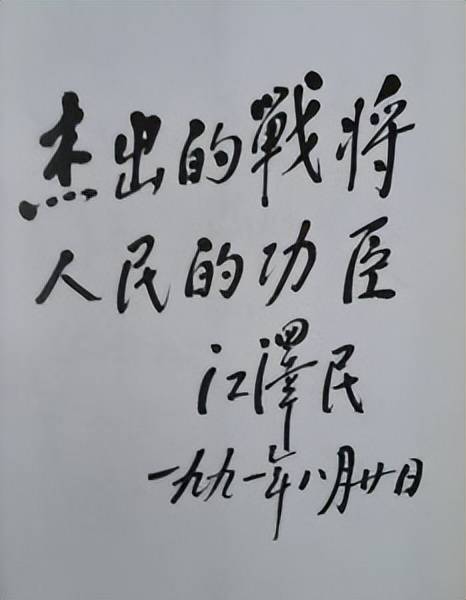 杰出的戰将
人民的功臣
江澤民
一九九一年八月廿日